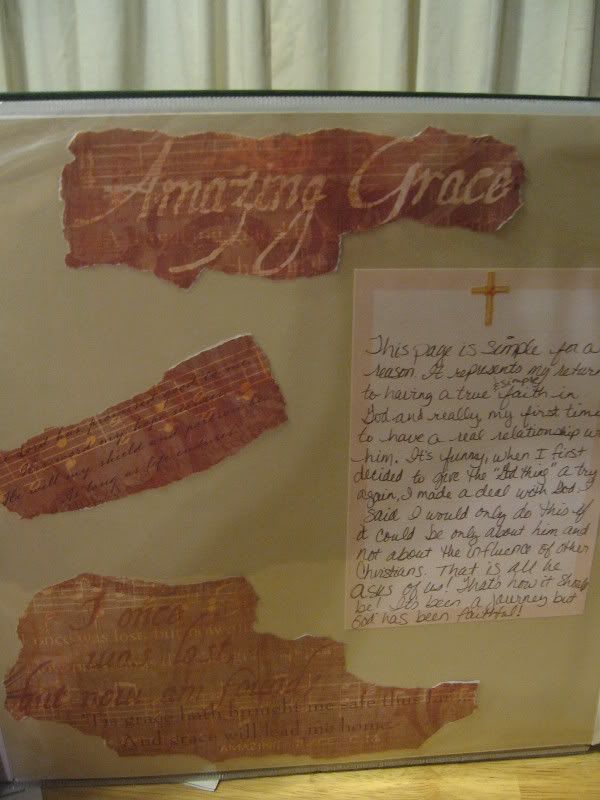 Amazing Grace
Lord has promised good to me
His word my hope secures
He will my shield and portion be
As long as life endures
This page is simple for a
reason. It represents my return
to having a true & simple faith in
God and really my first time
to have a real relationship w
him. It's funny, when I first
decided to give the "God thing" a try
again, I made a deal with God. I
said I would only do this if
it could be only about him and
not about the influence of other
Christians. That is all he
asks of us! That's how it should
be! It's been a journey but
God has been faithful!
I once
once was lost, but now
was lost
but now am found
'Tis grace hath brought me safe thus far...
And grace will lead me home.
AMAZING GRACE